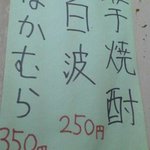 芋焼酎
白波
250円
なかむら
350円